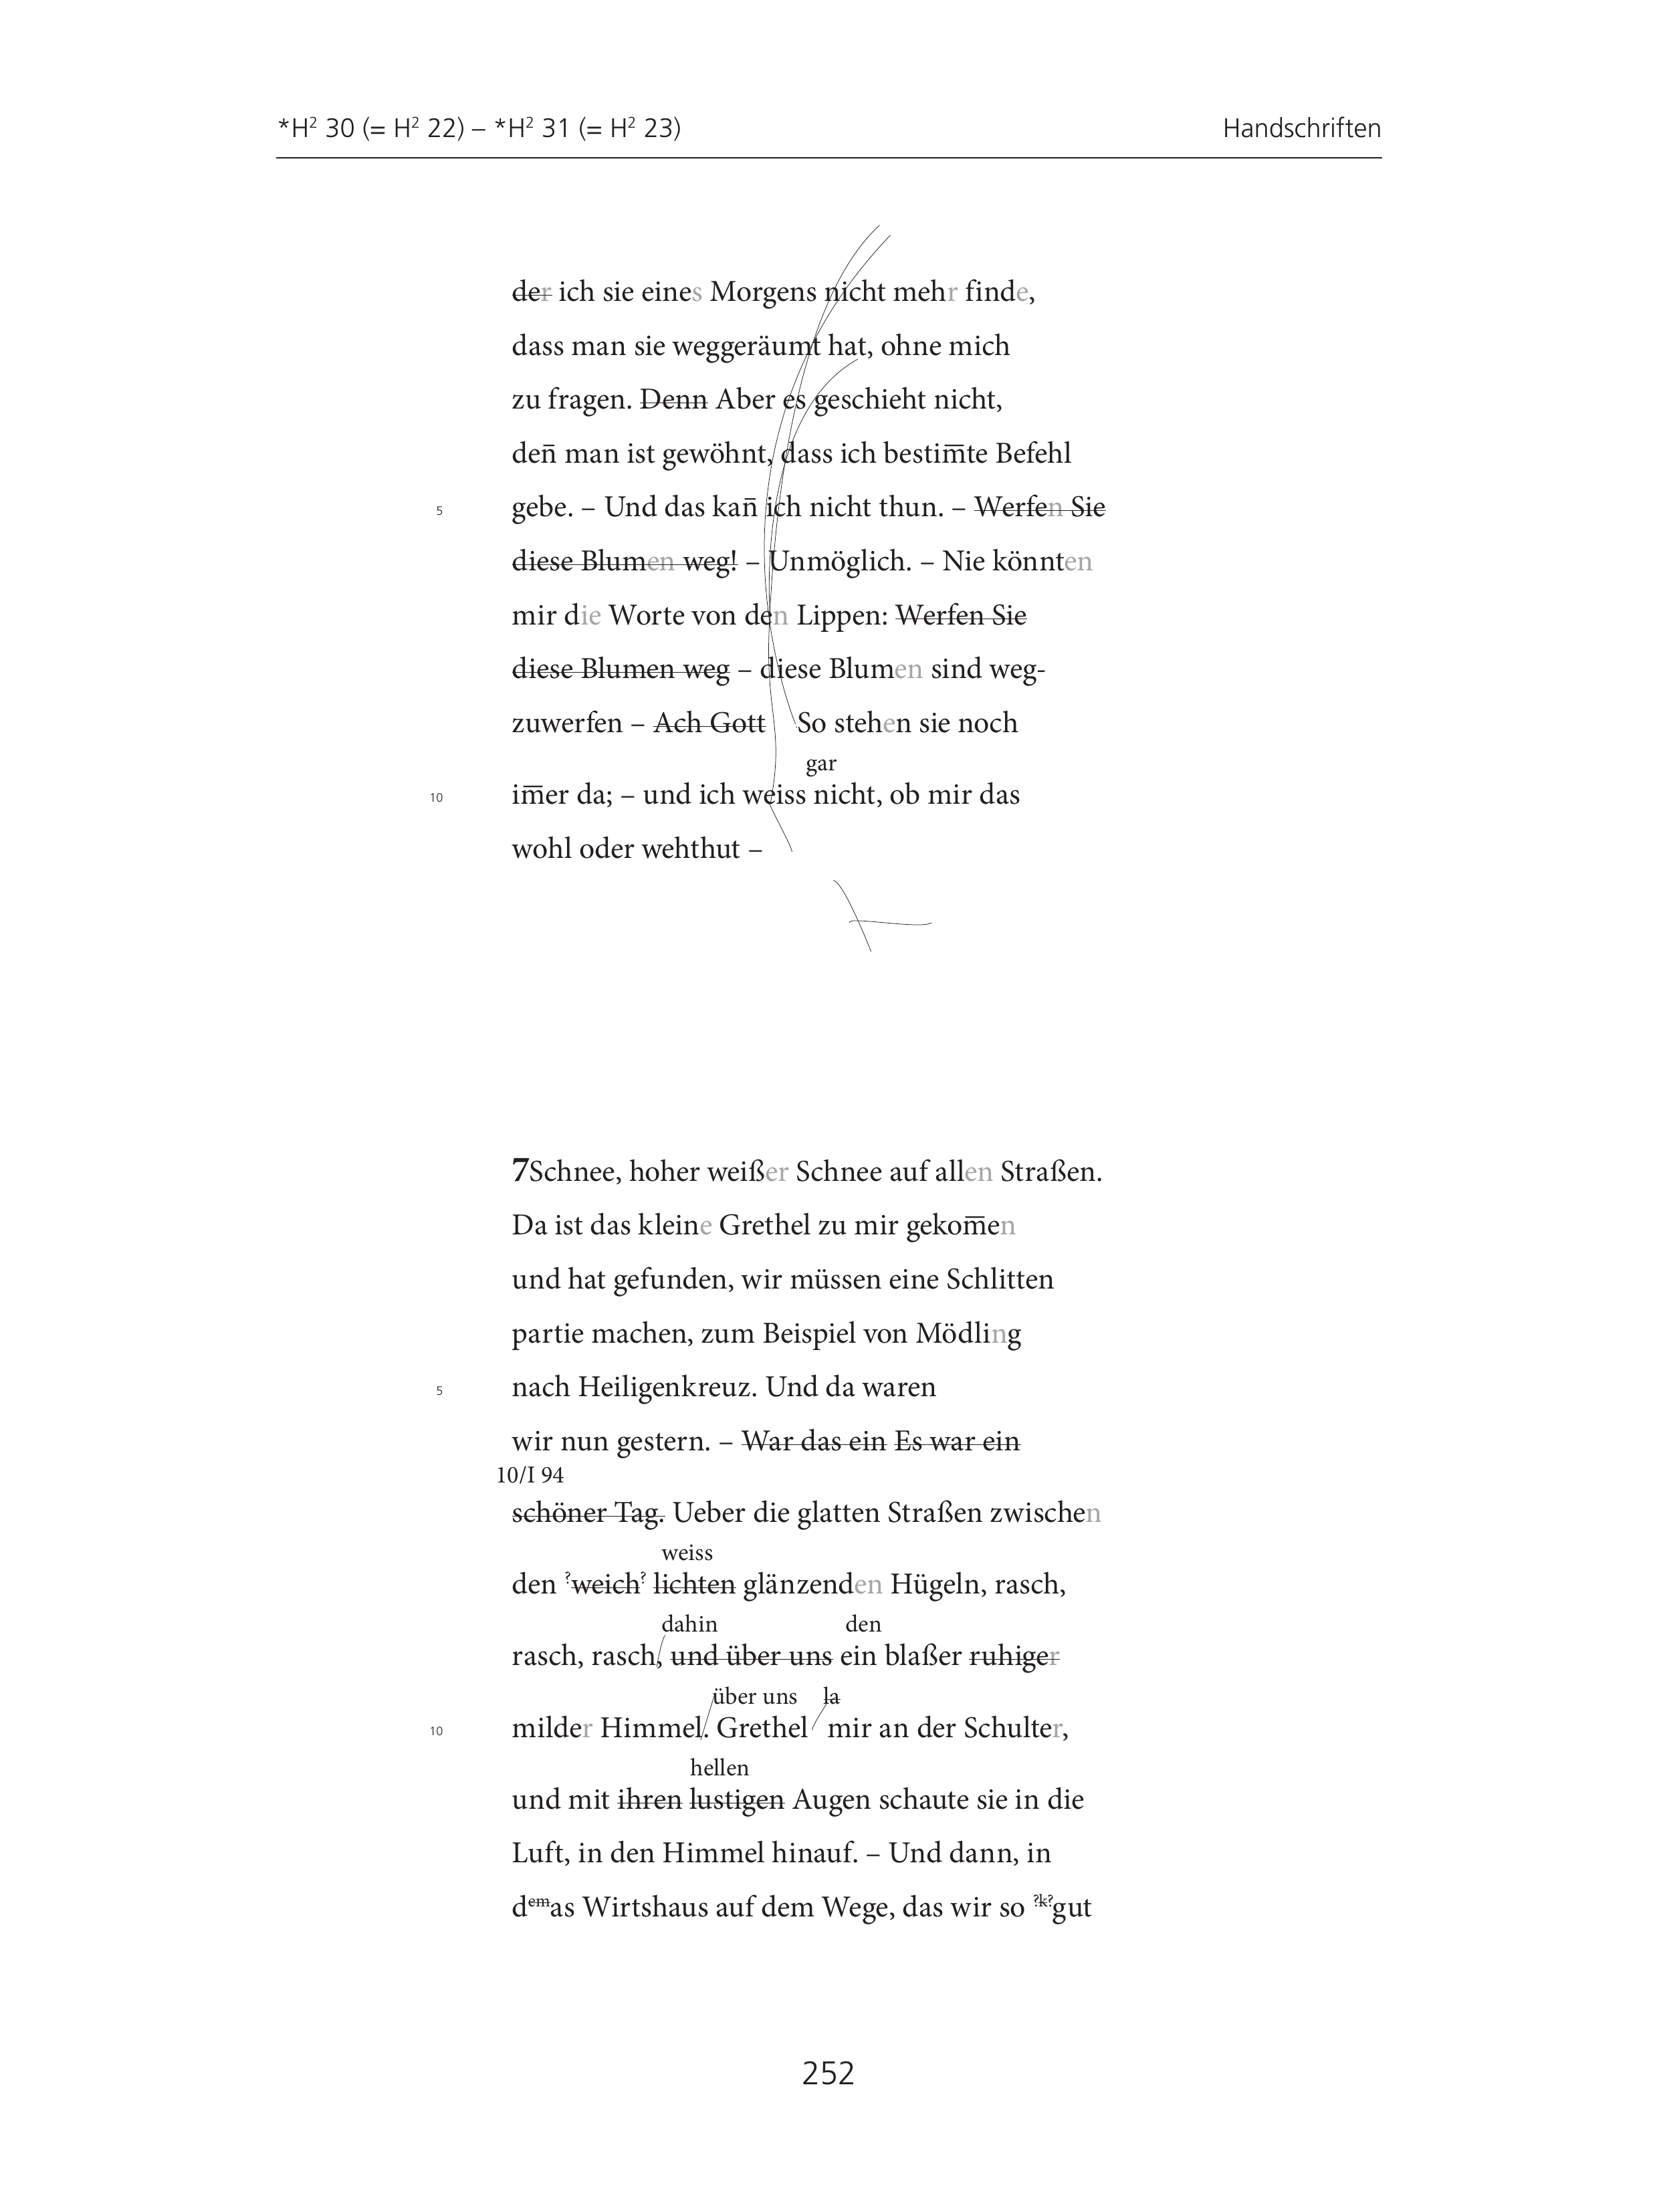 *H² 30 (= H² 22) – *H² 31 (= H² 23) Handschriften
der ich sie eines Morgens nicht mehr finde,
dass man sie weggeräumt hat, ohne mich
zu fragen. Denn Aber es geschieht nicht,
den̄ man ist gewöhnt, dass ich bestim̄te Befehl
5 gebe. – Und das kan̄ ich nicht thun. – Werfen Sie
diese Blumen weg! – Unmöglich. – Nie könnten
mir die Worte von den Lippen: Werfen Sie
diese Blumen weg – diese Blumen sind weg-
zuwerfen – Ach Gott So stehen sie noch
gar
10 im̄er da; – und ich weiss nicht, ob mir das
wohl oder wehthut –
7Schnee, hoher weißer Schnee auf allen Straßen.
Da ist das kleine Grethel zu mir gekom̄en
und hat gefunden, wir müssen eine Schlitten
partie machen, zum Beispiel von Mödling
5 nach Heiligenkreuz. Und da waren
wir nun gestern. – War das ein Es war ein
10/I 94
schöner Tag. Ueber die glatten Straßen zwischen
weiss
den ?weich? lichten glänzenden Hügeln, rasch,
dahin den
rasch, rasch, und über uns ein blaßer ruhiger
über uns la
10 milder Himmel. Grethel mir an der Schulter,
hellen
und mit ihren lustigen Augen schaute sie in die
Luft, in den Himmel hinauf. – Und dann, in
demas Wirtshaus auf dem Wege, das wir so ?k?gut
252